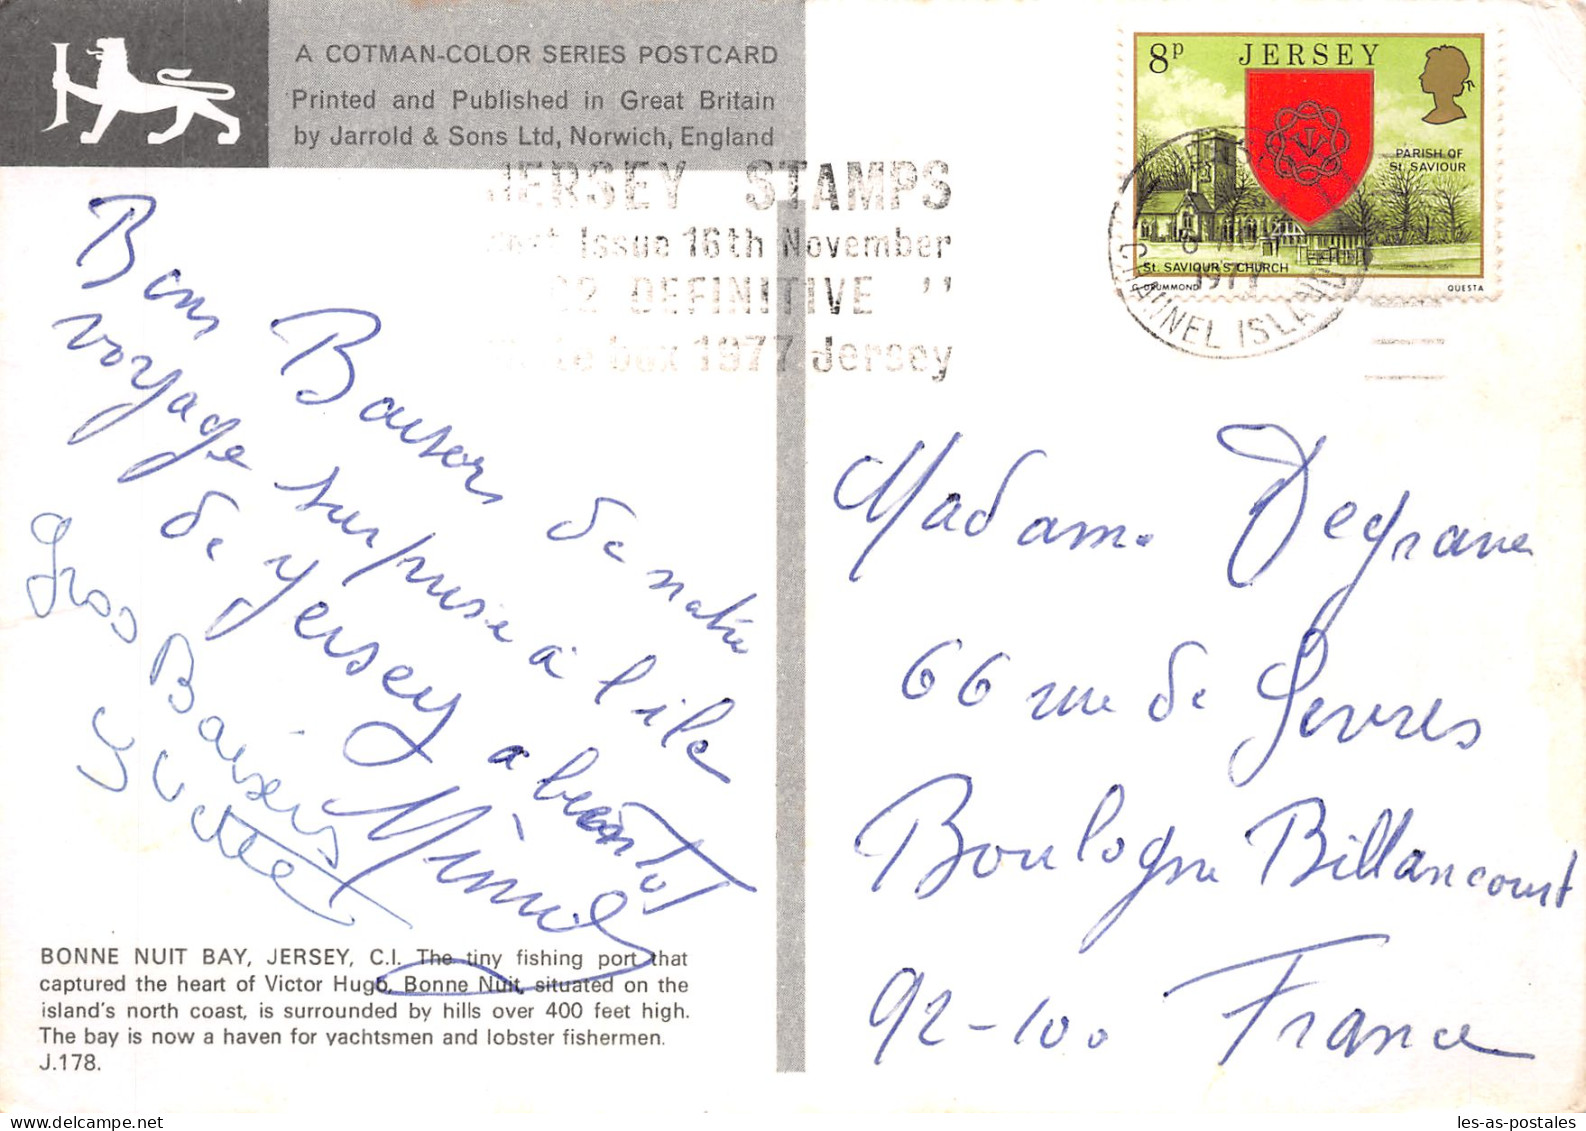 A COTMAN-COLOR SERIES POSTCARD
Printed and Published in Great Britain
by Jarrold & Sons Ltd, Norwich, England
JERSEY STAMPS
Issue 16th November
£2 DEFINITIVE "
box 1977 Jersey
8p JERSEY
PARISH OF
St. SAVIOUR
St. SAVIOUR'S CHURCH
G. DRUMMOND QUESTA
1977
CHANNEL ISLANDS
Bons Baisers de notre
voyage surprise à l'ile
de Yersey a bientôt
Gros Baisers
Madame Degrave
66 rue de Sevres
Boulogne Billancourt
92-100 France
BONNE NUIT BAY, JERSEY, C.I. The tiny fishing port that
captured the heart of Victor Hugo, Bonne Nuit, situated on the
island's north coast, is surrounded by hills over 400 feet high.
The bay is now a haven for yachtsmen and lobster fishermen.
J.178.
les-as-postales